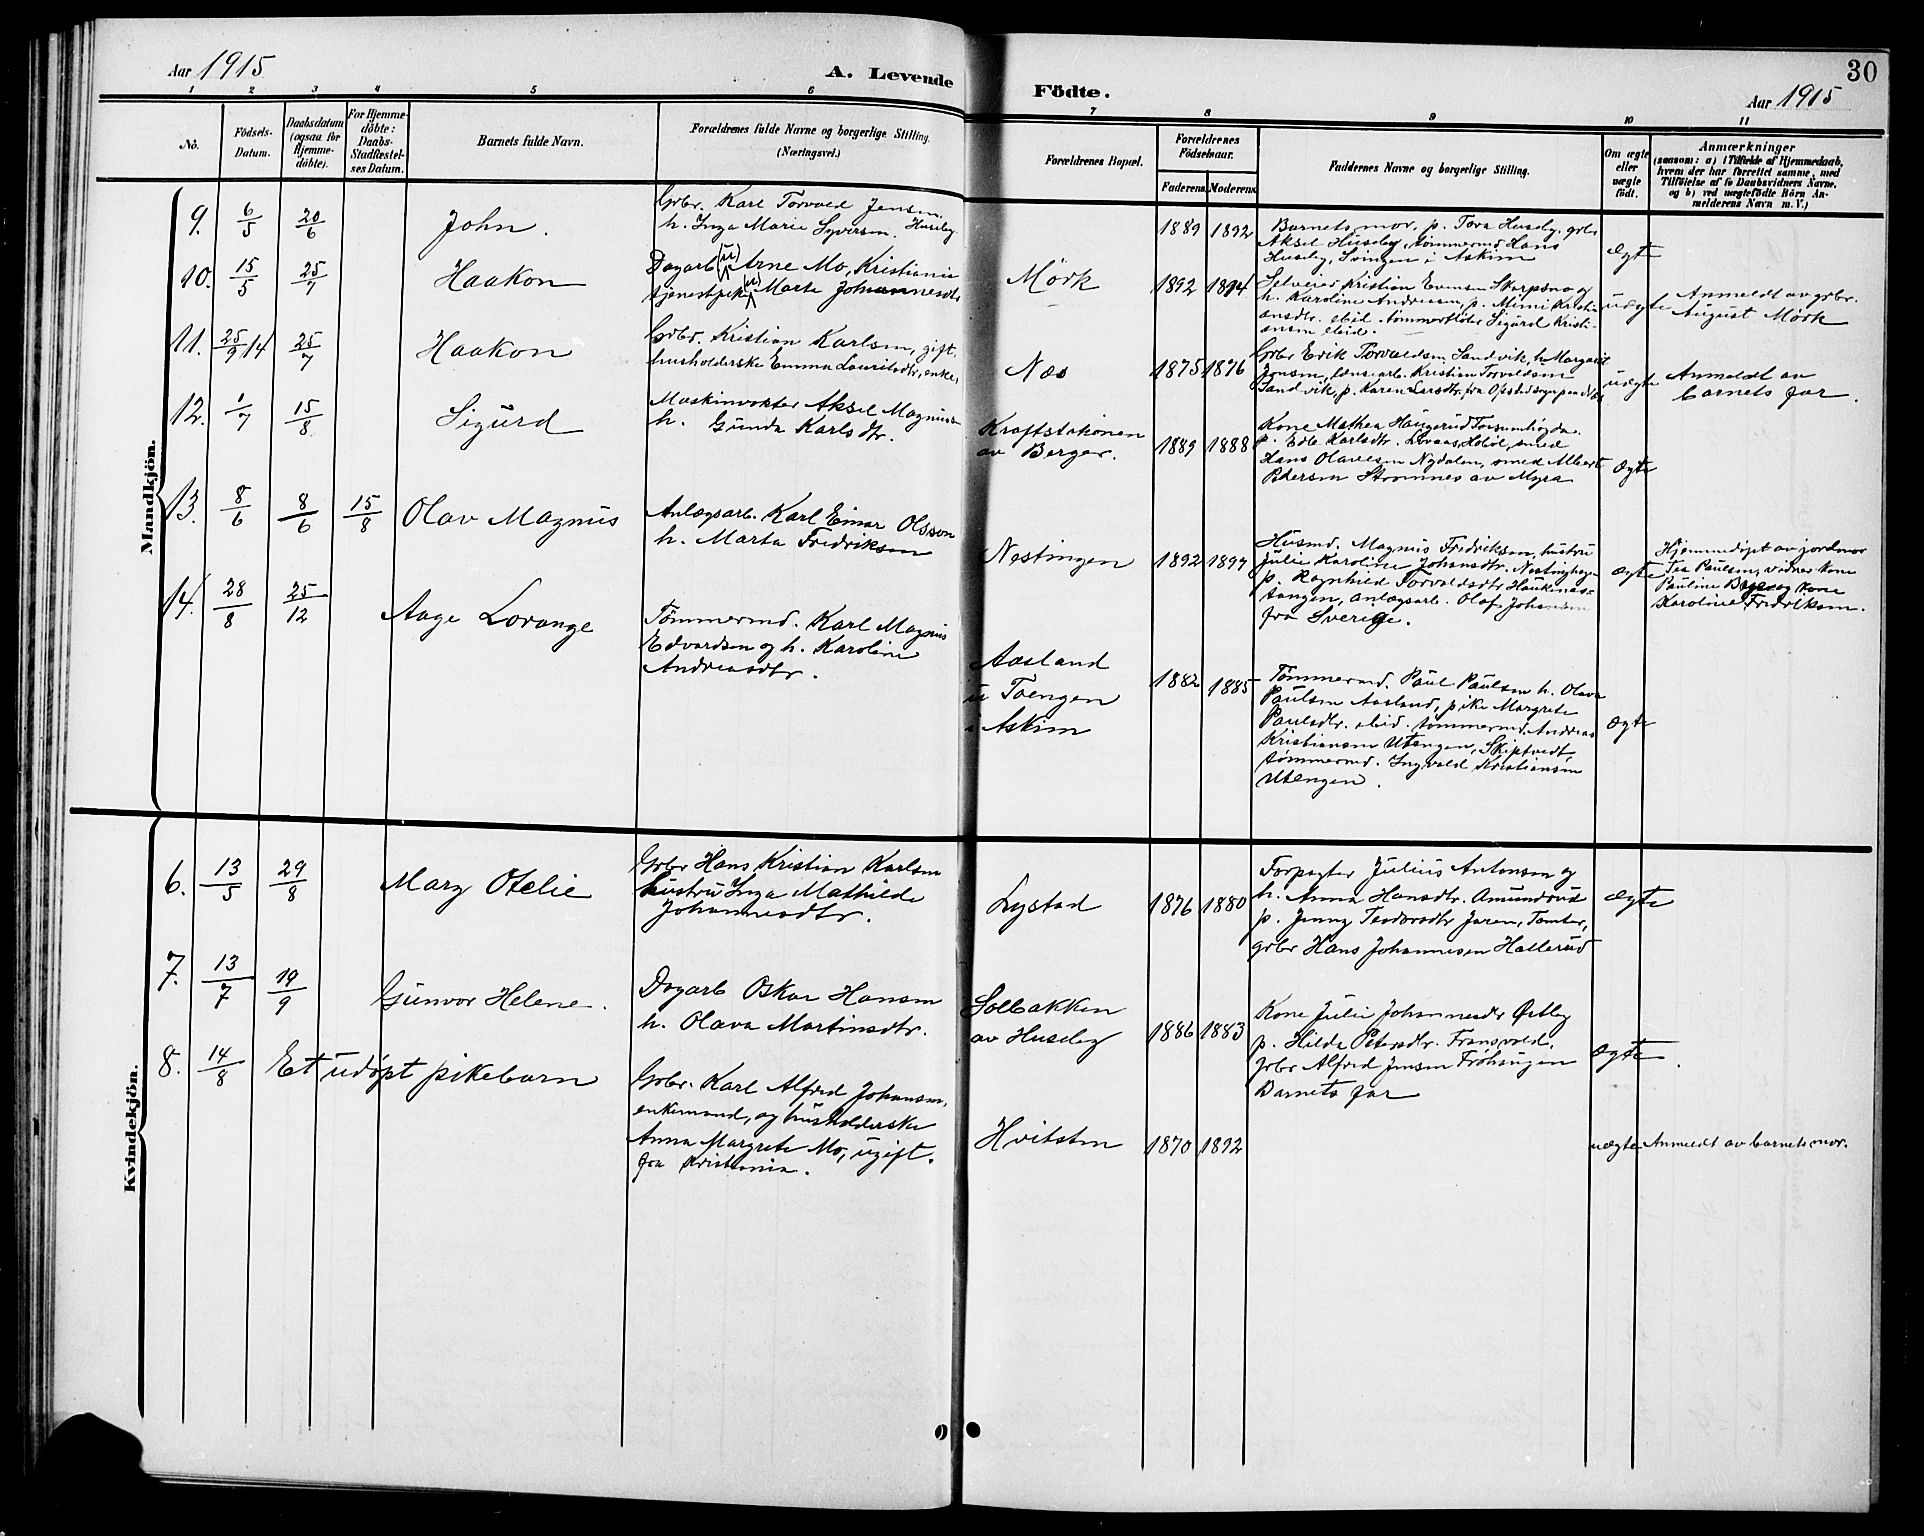 Aar 1915
A. Levende
Födte.
Aar 1915
30
1 2 3 4 5 6 7 8 9 10 11
No.
Födsels-
Datum.
Daabsdatum
(ogsaa for
Hjemme-
döbte).
For Hjemme-
döbte:
Daabs-
Stadfæstel-
ses Datum.
Barnets fulde Navn.
Forældrenes fulde Navne og borgerlige Stilling.
(Næringsvei.)
Forældrenes Bopæl.
Forældrenes
Födselsaar.
Faderens. Moderens.
Faddernes Navne og borgerlige Stilling.
Om ægte
eller
uægte
födt.
Anmærkninger
(saasom: a) i Tilfælde af Hjemmedaab,
hvem der har forrettet samme, med
Tilföielse af to Daabsvidners Navne,
og b) ved uægtefödte Börn An-
melderens Navn m. V.)
Mandkjön.
9. 6/5 20/6 John.
Grbr. Karl Torvald Jensen
h. Inga Marie Syversen. Huseby
1889 1892
Barnets mor, p. Tora Huseby, grbr
Aksel Huseby, tømmermd Hans
Huseby, Svingen i Askim
ægte
10. 15/5 25/7 Haakon
Dagarb (u) Arne Mo, Kristiania
tjenestpike (u) Marta Johannesdtr
Mörk
1892 1894
Selveier Kristian Evensen Skarpsno og
h. Karoline Andreasen, p. Mimi Kristi-
ansdtr. ibid. tømmerfløter Sigurd Kristi-
ansen ibid.
uægte
Anmeldt av grbr.
August Mörk
11. 25/9 14 25/7 Haakon
Grbr. Kristian Karlsen, gift,
husholderske Emma Lauritsdtr, enke,
Næs
1875 1876
Grbr Erik Torvaldsen Sandvik, h. Margaret
Jensen, løsearb. Kristian Torvaldsen
Sandvik, p. Karen Larsdtr. fra
uægte
Anmeldt av
barnets far.
12. 1/7 15/8 Sigurd
Maskinvokter Aksel Magnussen
h. Gunda Karlsdtr.
Kraftstationen
av Berger.
1889 1888
Kone Mathea Haugerud Tosumhøgda
p. Edle Karlsdtr. Løvaas, Hobøl, smed
Hans Olavesen Nydalen, smed Albert
Pedersen Strømnes av Myra
ægte
13. 8/6 8/6 15/8 Olav Magnus
Anlægsarb. Karl Einar Olsson
h. Marta Fredriksen
Nestingen
1892 1897
Husmd. Magnus Fredriksen, hustru
Julie Karoline Johansdtr. Nestinghagen
p. Ragnhild Torvaldsdtr. Haukenes-
tangen, anlægsarb. Olaf Johansen
fra Sverige.
ægte
Hjemmedøpt av jordmor
Tea Paulsen, vidner kone
Pauline og kone
Karoline Fredriksen.
14. 28/8 25/12 Aage Lorange
Tømmermd. Karl Magnus
Edvardsen og h. Karoline
Andreasdtr.
Aasland
u Toengen
i Askim
1882 1885
Tømmermd. Paul Paulsen h. Olava
Paulsen Aasland, pike Margrete
Paulsdtr. ibid. tømmermd. Andreas
Kristiansen Utengen, Skiptvedt
tømmermd. Ingvald Kristiansen
Utengen.
ægte
Kvindekjön.
6. 13/5 29/8 Mary Otelie
Grbr Hans Kristian Karlsen
hustru Inga Mathilde
Johannesdtr.
Lystad
1876 1880
Forpagter Julius Antonsen og
h. Anna Hansdtr. Amundrud
p. Jenny Teodorsdtr Jaren, Tomter,
grbr Hans Johannesen Hallerud
ægte
7. 13/7 19/9 Gunvor Helene.
Dagarb Oskar Hansen
h. Olava Martinsdtr.
Solbakken
av Huseby
1886 1883
Kone Julie Johannesdtr Østby
p. Hilda Petersdtr. Fransvold,
grbr Alfred Jensen Frøhaugen
Barnets far
ægte
8. 14/8 Et udøpt pikebarn
Grbr. Karl Alfred Johansen,
enkemand, og husholderske
Anna Margrete Mo, ugift,
fra Kristiania.
Hvitsten
1870 1892
uægte
Anmeldt av barnets mor.